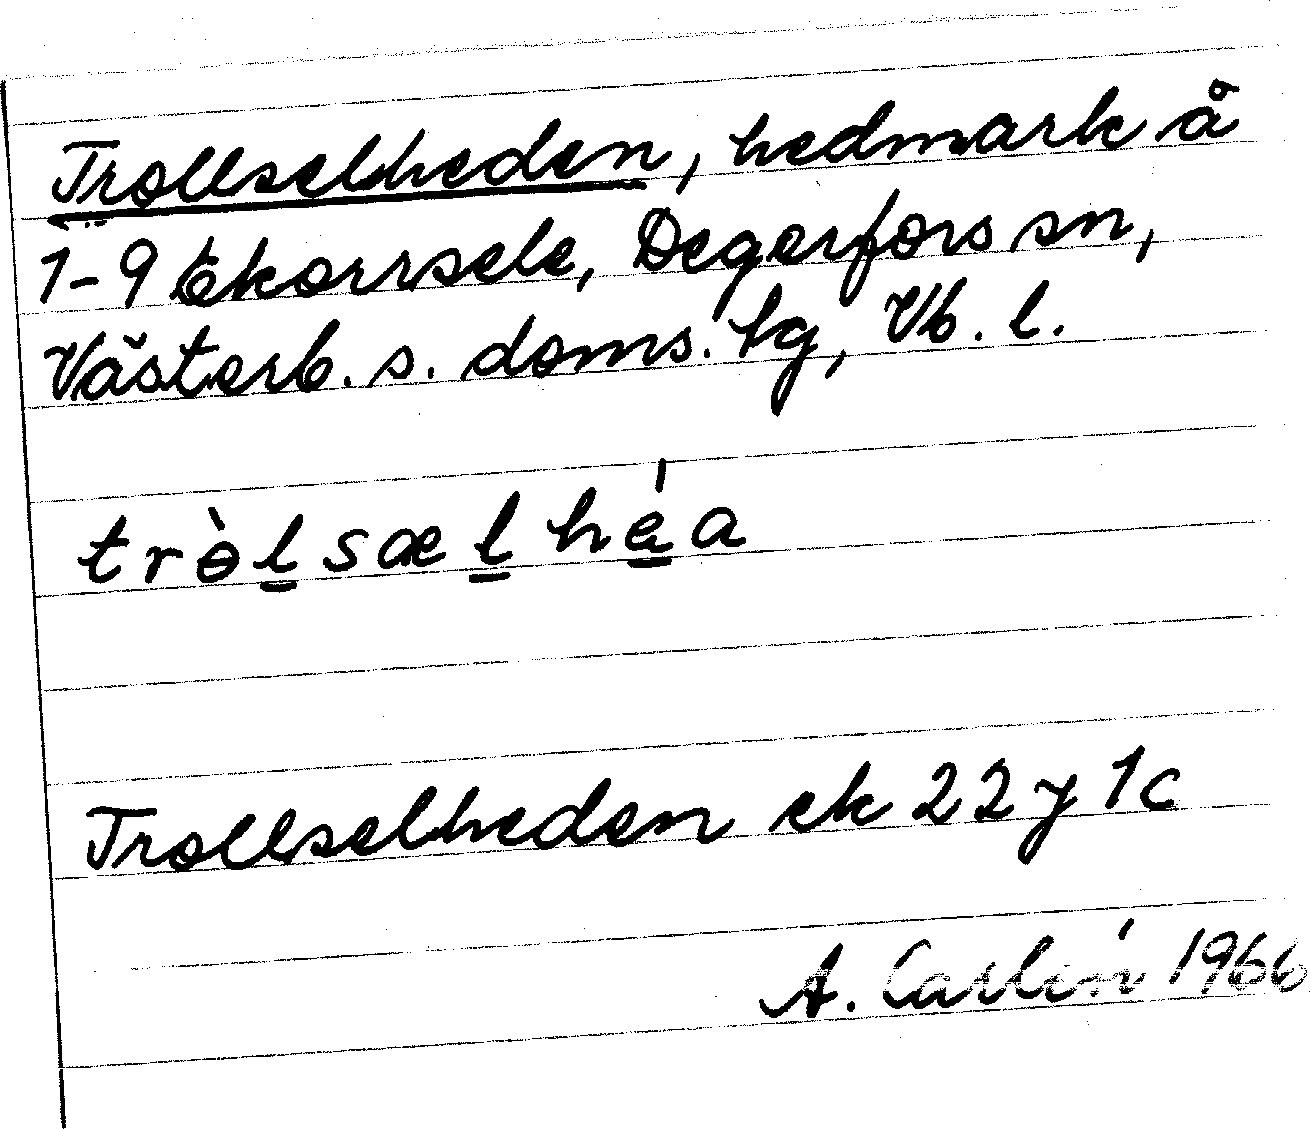 Trollselheden, hedmark å
1-9 Ekorrsele, Degerfors sn,
Västerb. s. doms. hg, Vb. l.
trɵ̀l̠sæl̠hé̠a
Trollselheden ek 22 y 1c
A. Carlén 1966